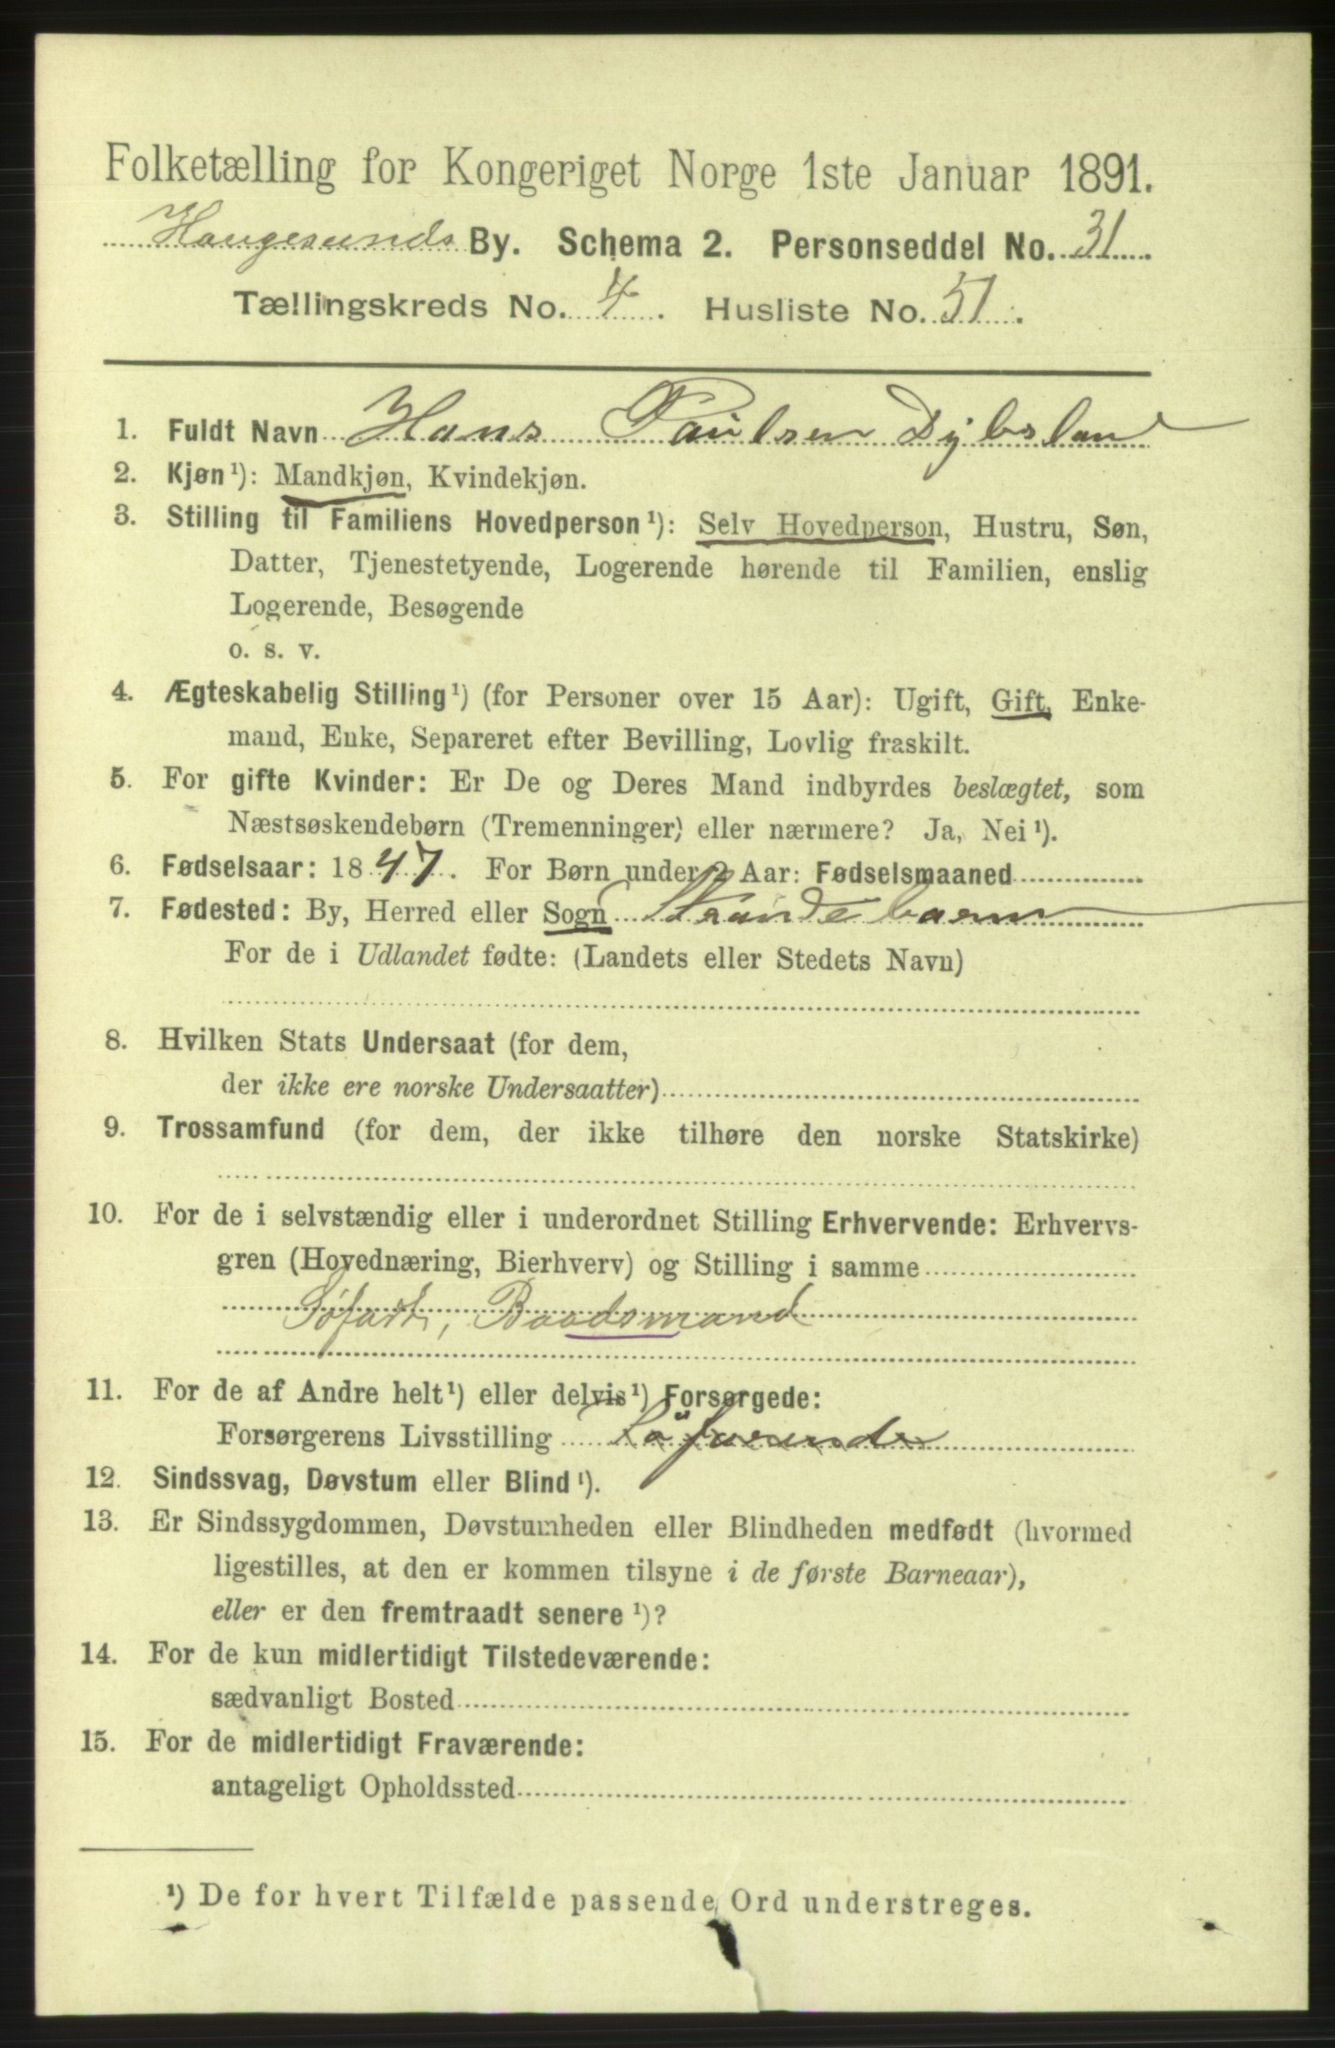 Folketælling for Kongeriget Norge 1ste Januar 1891.
Haugesunds By. Schema 2. Personseddel No. 31.
Tællingskreds No. 4. Husliste No. 51.
1. Fuldt Navn Hans Paulsen Dybsland
2. Kjøn¹): Mandkjøn, Kvindekjøn.
3. Stilling til Familiens Hovedperson¹): Selv Hovedperson, Hustru, Søn,
Datter, Tjenestetyende, Logerende hørende til Familien, enslig
Logerende, Besøgende
o. s. v.
4. Ægteskabelig Stilling¹) (for Personer over 15 Aar): Ugift, Gift, Enke-
mand, Enke, Separeret efter Bevilling, Lovlig fraskilt.
5. For gifte Kvinder: Er De og Deres Mand indbyrdes beslægtet, som
Næstsøskendebørn (Tremenninger) eller nærmere? Ja, Nei¹).
6. Fødselsaar: 1847. For Børn under 2 Aar: Fødselsmaaned
7. Fødested: By, Herred eller Sogn Strandebarm
For de i Udlandet fødte: (Landets eller Stedets Navn)
8. Hvilken Stats Undersaat (for dem,
der ikke ere norske Undersaatter)
9. Trossamfund (for dem, der ikke tilhøre den norske Statskirke)
10. For de i selvstændig eller i underordnet Stilling Erhvervende: Erhvervs-
gren (Hovednæring, Bierhverv) og Stilling i samme
Søfart, Baadsmand
11. For de af Andre helt¹) eller delvis¹) Forsørgede:
Forsørgerens Livsstilling Söfarende
12. Sindssvag, Døvstum eller Blind¹).
13. Er Sindssygdommen, Døvstumheden eller Blindheden medfødt (hvormed
ligestilles, at den er kommen tilsyne i de første Barneaar),
eller er den fremtraadt senere¹)?
14. For de kun midlertidigt Tilstedeværende:
sædvanligt Bosted
15. For de midlertidigt Fraværende:
antageligt Opholdssted
¹) De for hvert Tilfælde passende Ord understreges.